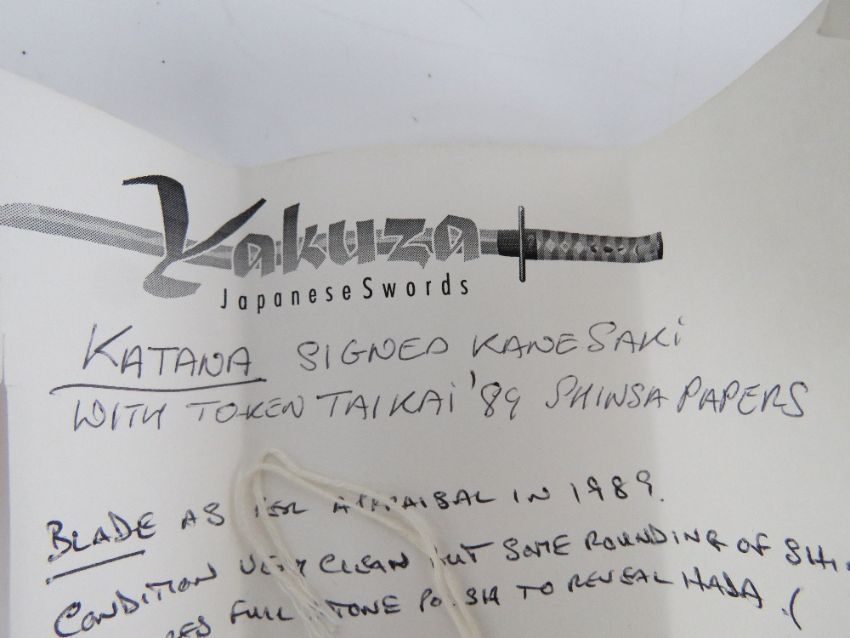 Yakuza
Japanese Swords
KATANA SIGNED KANESAKI
WITH TOKEN TAIKAI '89 SHINSA PAPERS
BLADE AS PER APPRAISAL IN 1989.
CONDITION VERY CLEAN BUT SOME ROUNDING OF SHI
FULL STONE POLISH TO REVEAL HADA. (